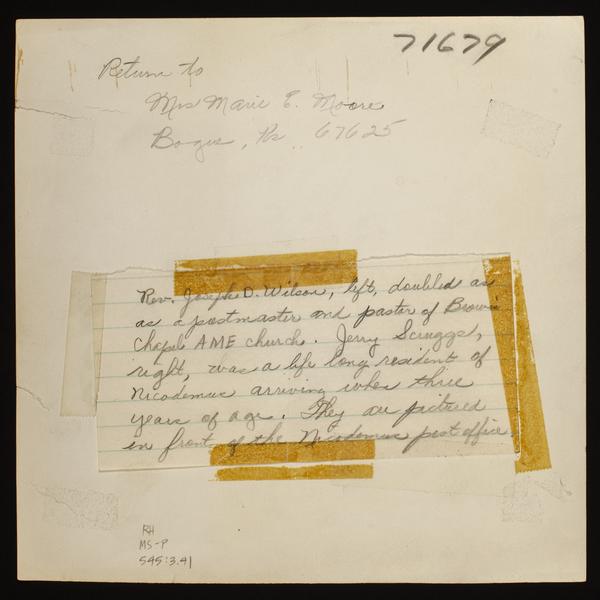 71679
Return to
Mrs Marie E. Moore
Bogue, Ks. 67625
Rev. Joseph D. Wilson, left, doubled as
as a postmaster and pastor of Brown
Chapel AME church. Jerry Scruggs,
right, was a life long resident of
Nicodemus arriving when three
years of age. They are pictured
in front of the Nicodemus post office.
RH
MS-P
545:3.41